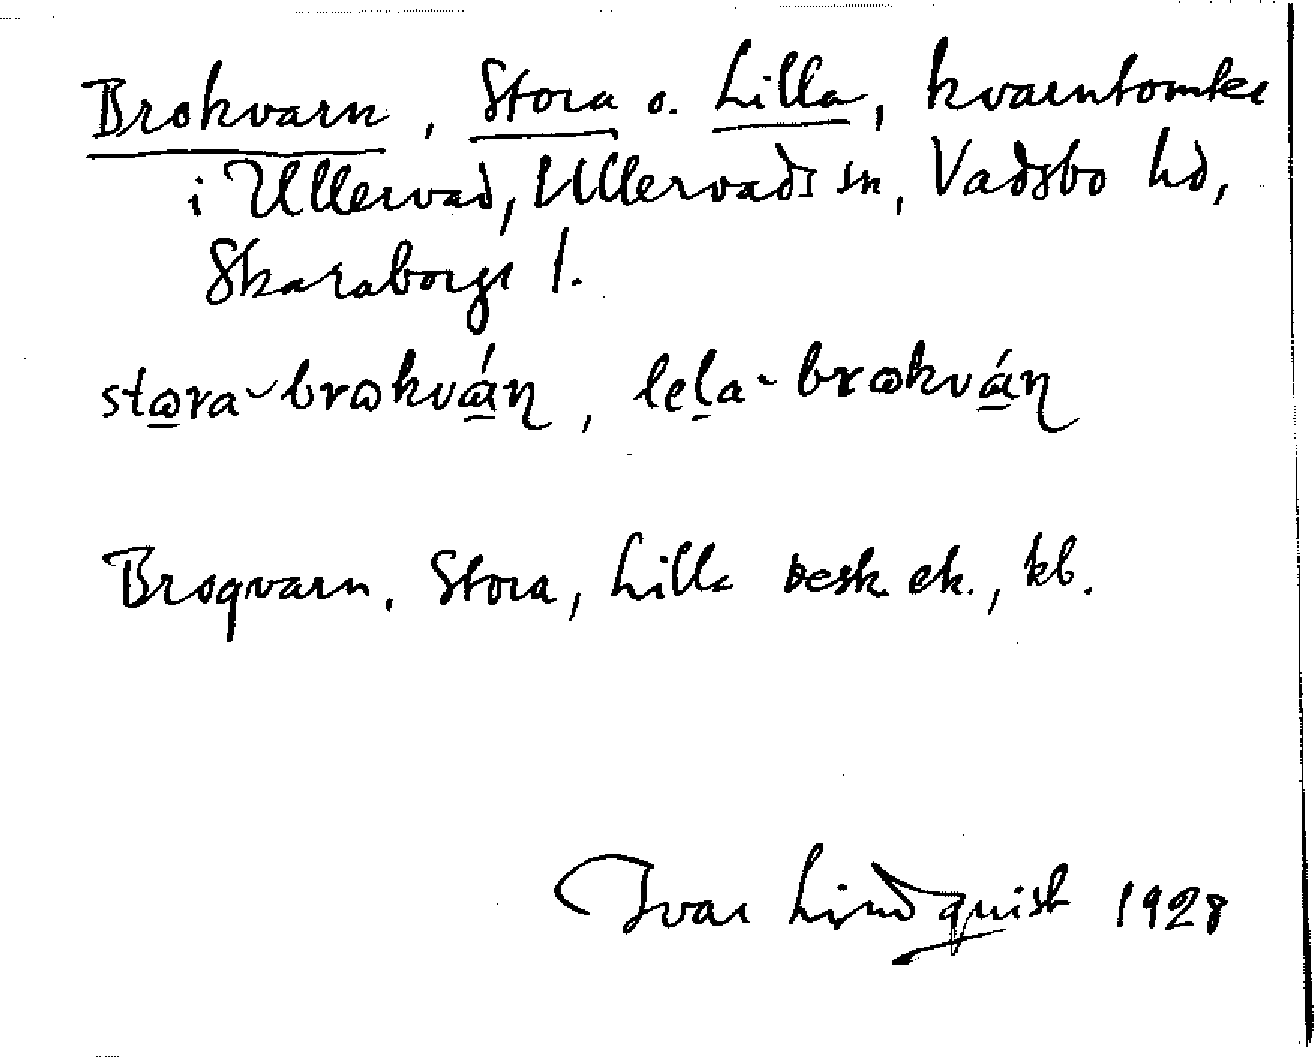 Brokvarn, Stora o. Lilla, kvarntomter
i Ullervad, Ullervads sn, Vadsbo hd,
Skaraborgs l.
stɷra-brɷkván, leḷa-brɷkván
Broqvarn, Stora, Lilla besk. ek., kb.
Ivar Lindquist 1928